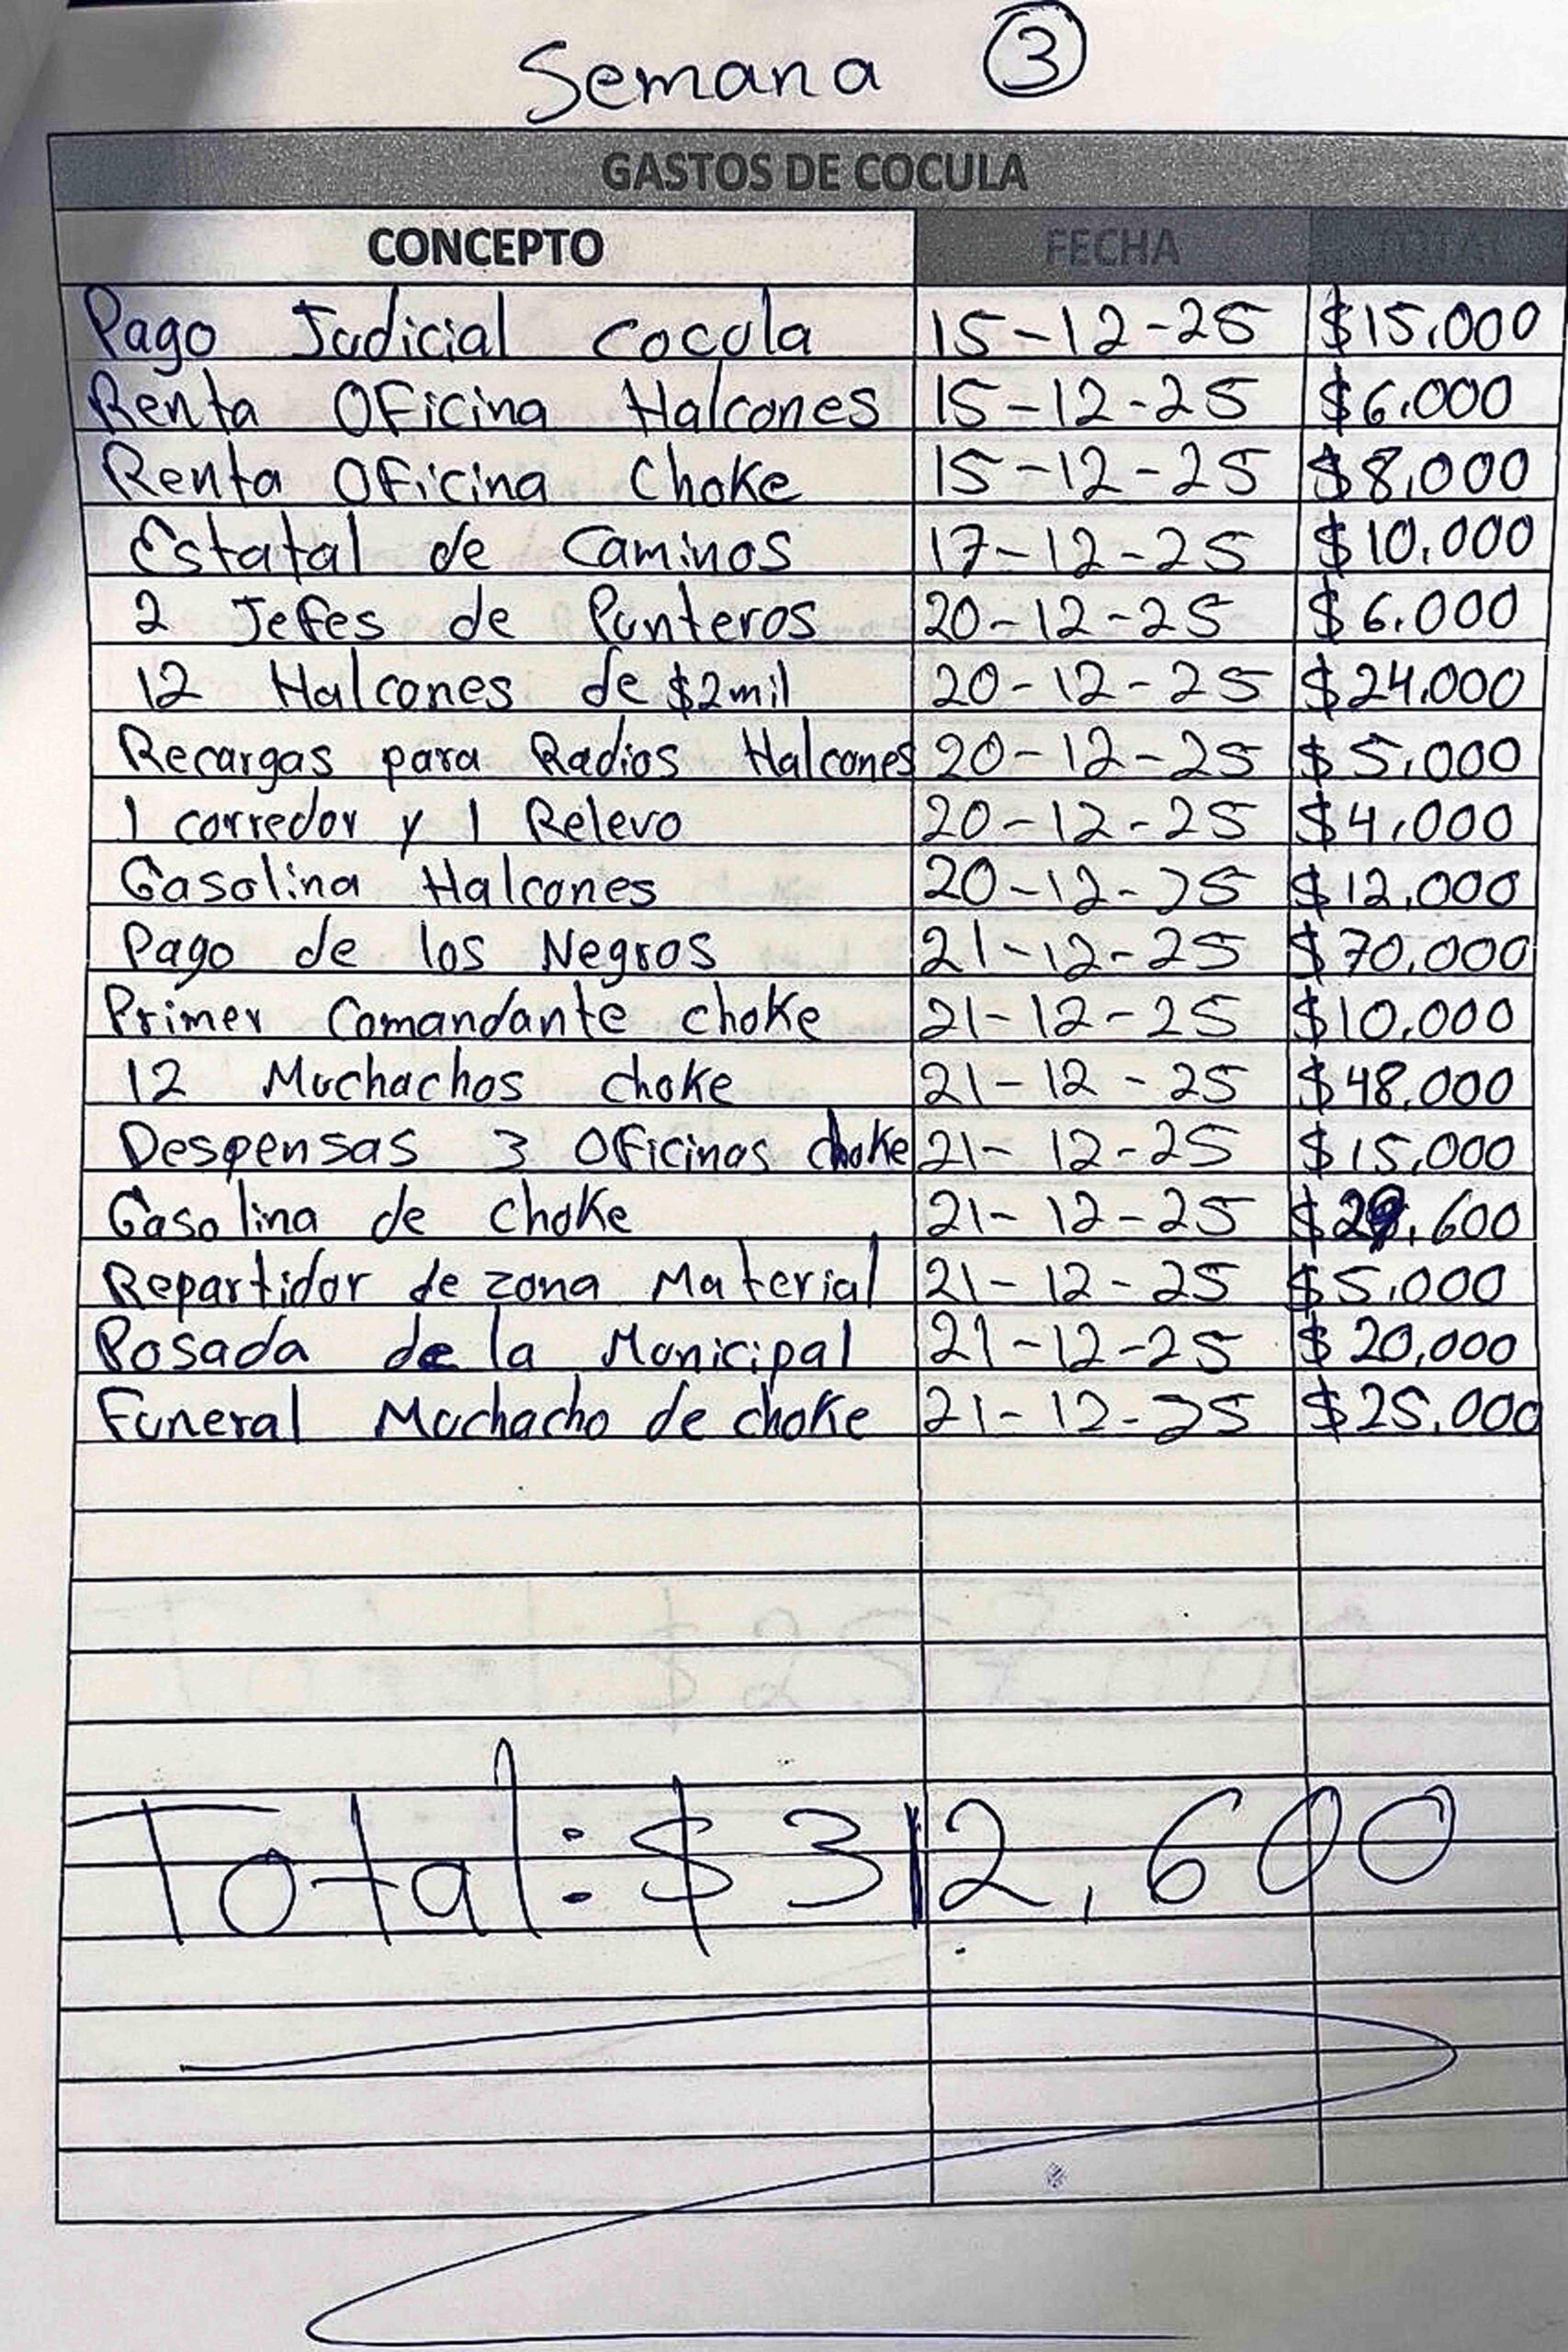 Semana 3
GASTOS DE COCULA
CONCEPTO FECHA TOTAL
Pago Judicial Cocula 15-12-25 $15,000
Renta Oficina Halcones 15-12-25 $6,000
Renta Oficina Choke 15-12-25 $8,000
Estatal de Caminos 17-12-25 $10,000
2 Jefes de Punteros 20-12-25 $6,000
12 Halcones de $2mil 20-12-25 $24,000
Recargas para Radios Halcones 20-12-25 $5,000
1 corredor y 1 Relevo 20-12-25 $4,000
Gasolina Halcones 20-12-25 $12,000
Pago de los Negros 21-12-25 $70,000
Primer Comandante choke 21-12-25 $10,000
12 Muchachos choke 21-12-25 $48,000
Despensas 3 Oficinas choke 21-12-25 $15,000
Gasolina de choke 21-12-25 $29,600
Repartidor de zona Material 21-12-25 $5,000
Posada de la Municipal 21-12-25 $20,000
Funeral Muchacho de choke 21-12-25 $25,000
Total: $312,600